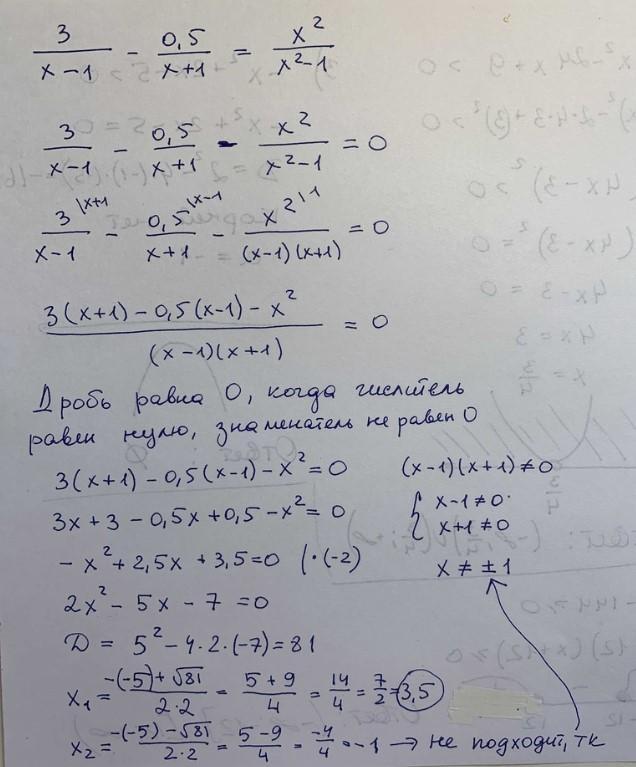 3/(x-1) - 0,5/(x+1) = x²/(x²-1)
3/(x-1) - 0,5/(x+1) - x²/(x²-1) = 0
3\x+1/(x-1) - 0,5\x-1/(x+1) - x²\1/((x-1)(x+1)) = 0
(3(x+1) - 0,5(x-1) - x²)/((x-1)(x+1)) = 0
Дробь равна 0, когда числитель
равен нулю, знаменатель не равен 0
3(x+1) - 0,5(x-1) - x² = 0
(x-1)(x+1) ≠ 0
3x + 3 - 0,5x + 0,5 - x² = 0
{ x-1 ≠ 0
x+1 ≠ 0
- x² + 2,5x + 3,5 = 0 |·(-2)
x ≠ ± 1
2x² - 5x - 7 = 0
D = 5² - 4·2·(-7) = 81
x₁ = (-(-5) + √81)/(2·2) = (5+9)/4 = 14/4 = 7/2 = 3,5
x₂ = (-(-5) - √81)/(2·2) = (5-9)/4 = -4/4 = -1 → не подходит, тк